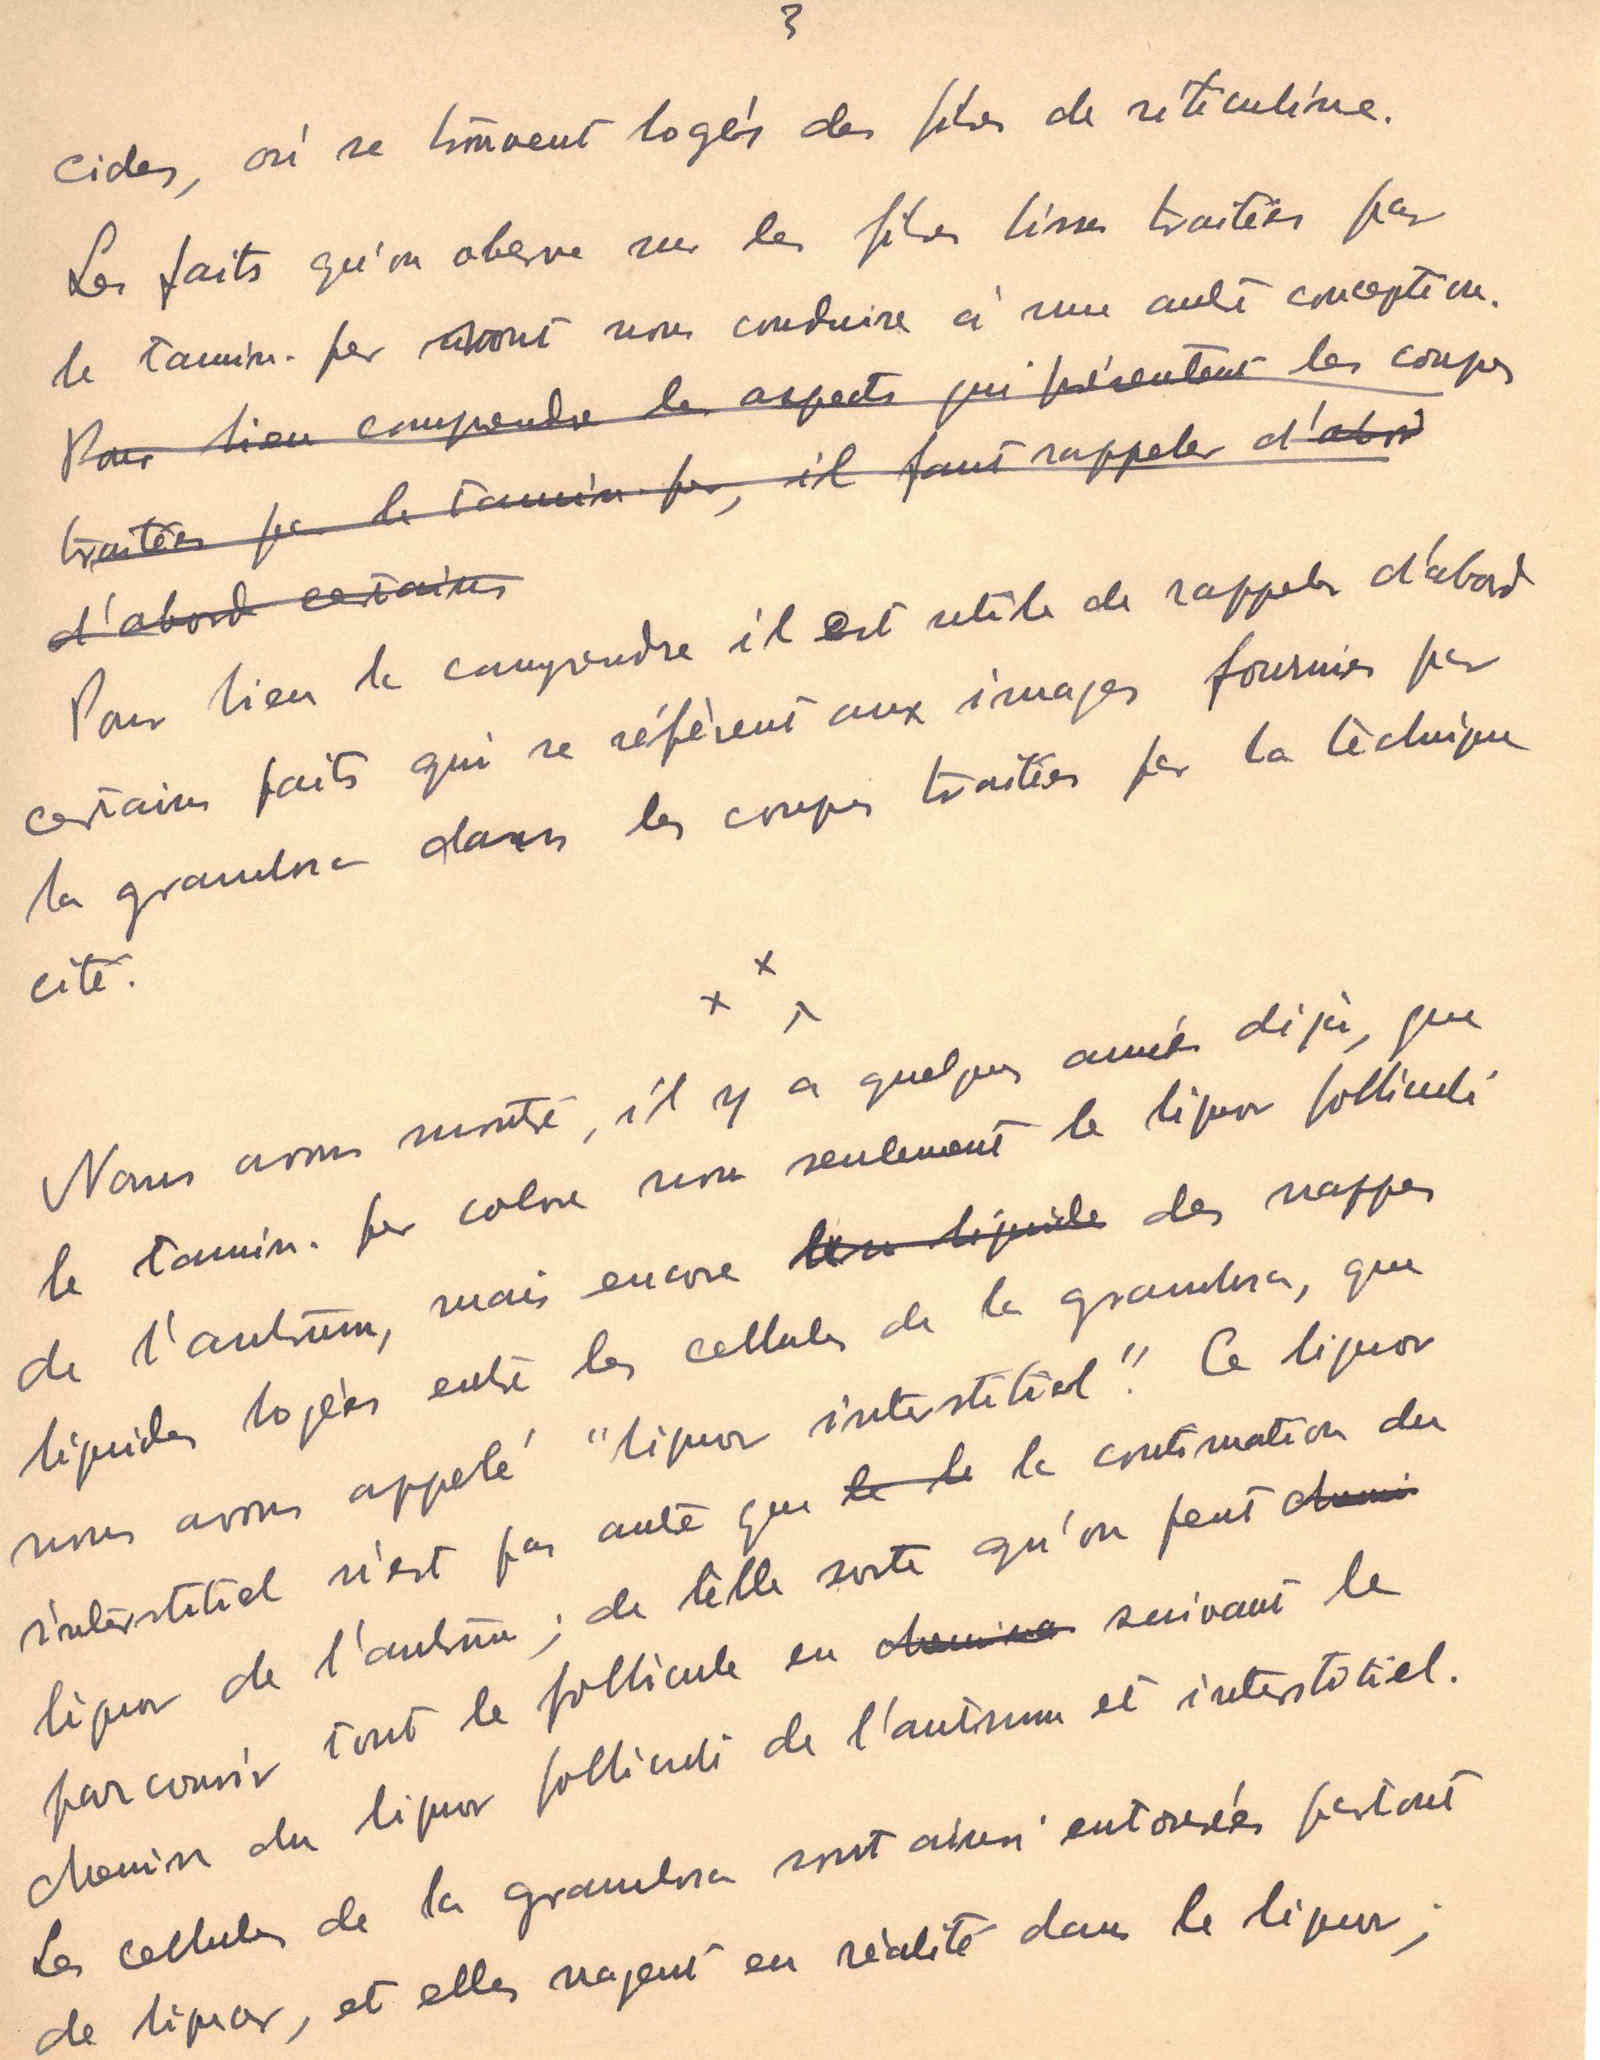 3
cides, où se trouvent logés des fibres de réticuline.
Les faits qu'on observe sur les fibres lisses traitées par
le tannin-fer vont nous conduire à une autre conception.
Pour bien comprendre les aspects qui présentent les coupes
traitées par le tannin-fer, il faut rappeler d'abord
d'abord certains
Pour bien la comprendre il est utile de rappeler d'abord
certains faits qui se réfèrent aux images fournies par
la granulosa dans les coupes traitées par la technique
cité.
x x x
Nous avons montré, il y a quelques années déjà, que
le tannin-fer colore non seulement le liquor folliculi
de l'antrum, mais encore liquide des nappes
liquides logées entre les cellules de la granulosa, que
nous avons appelé "liquor interstitiel". Ce liquor
interstitiel n'est pas autre que le le la continuation du
liquor de l'antrum ; de telle sorte qu'on peut chemi
parcourir tout le follicule en chemina suivant le
chemin du liquor folliculi de l'antrum et interstitiel.
Les cellules de la granulosa sont ainsi entourées partout
de liquor, et elles nagent en réalité dans le liquor ;